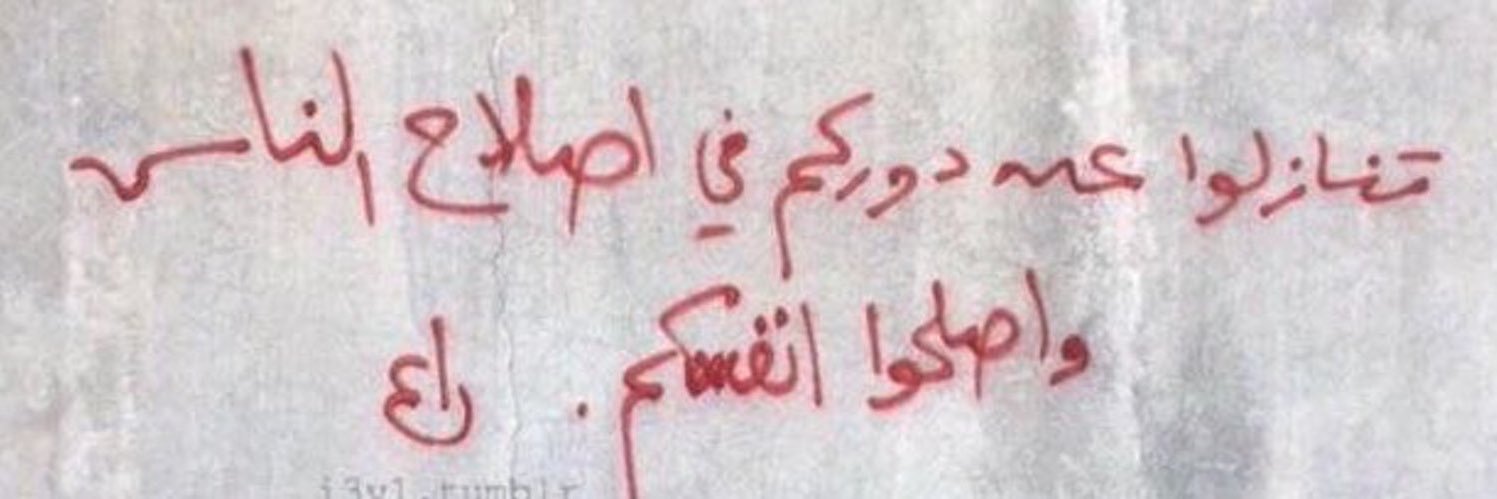 تنازلوا عن دوركم في اصلاح الناس
واصلحوا انفسكم . راع